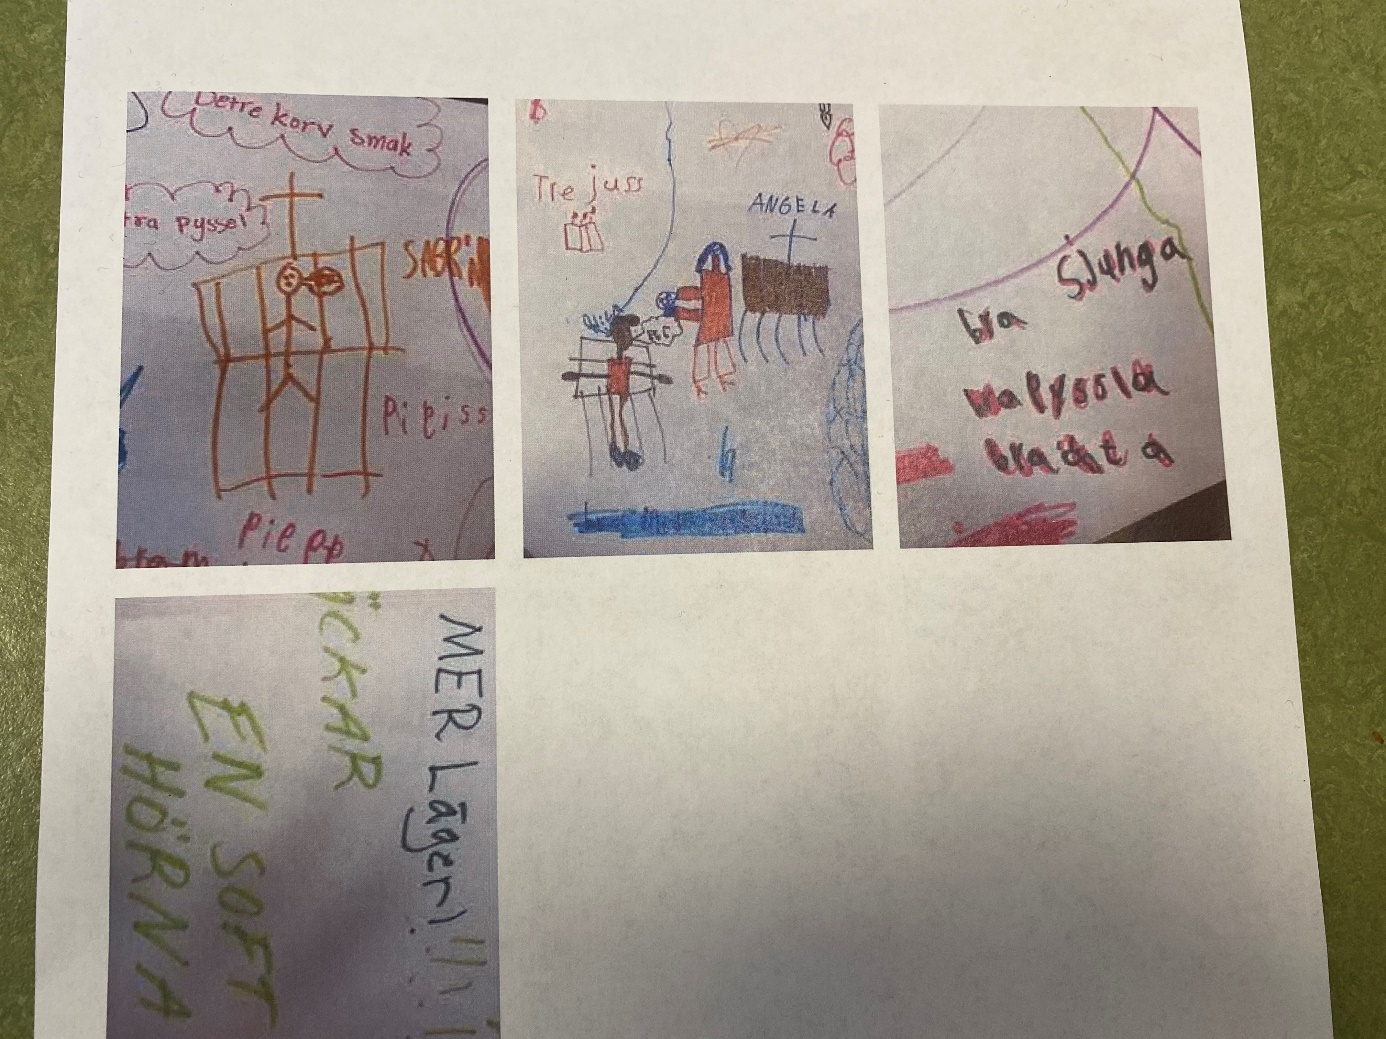 Detre korv smak
tra pyssel
SABRIN
Pitiss
Piepp
Tre juss
ANGELA
Sjunga
bra
malyssla
braätta
ÄCKAR
MER Läger!!!!
EN SOFT
HÖRNA